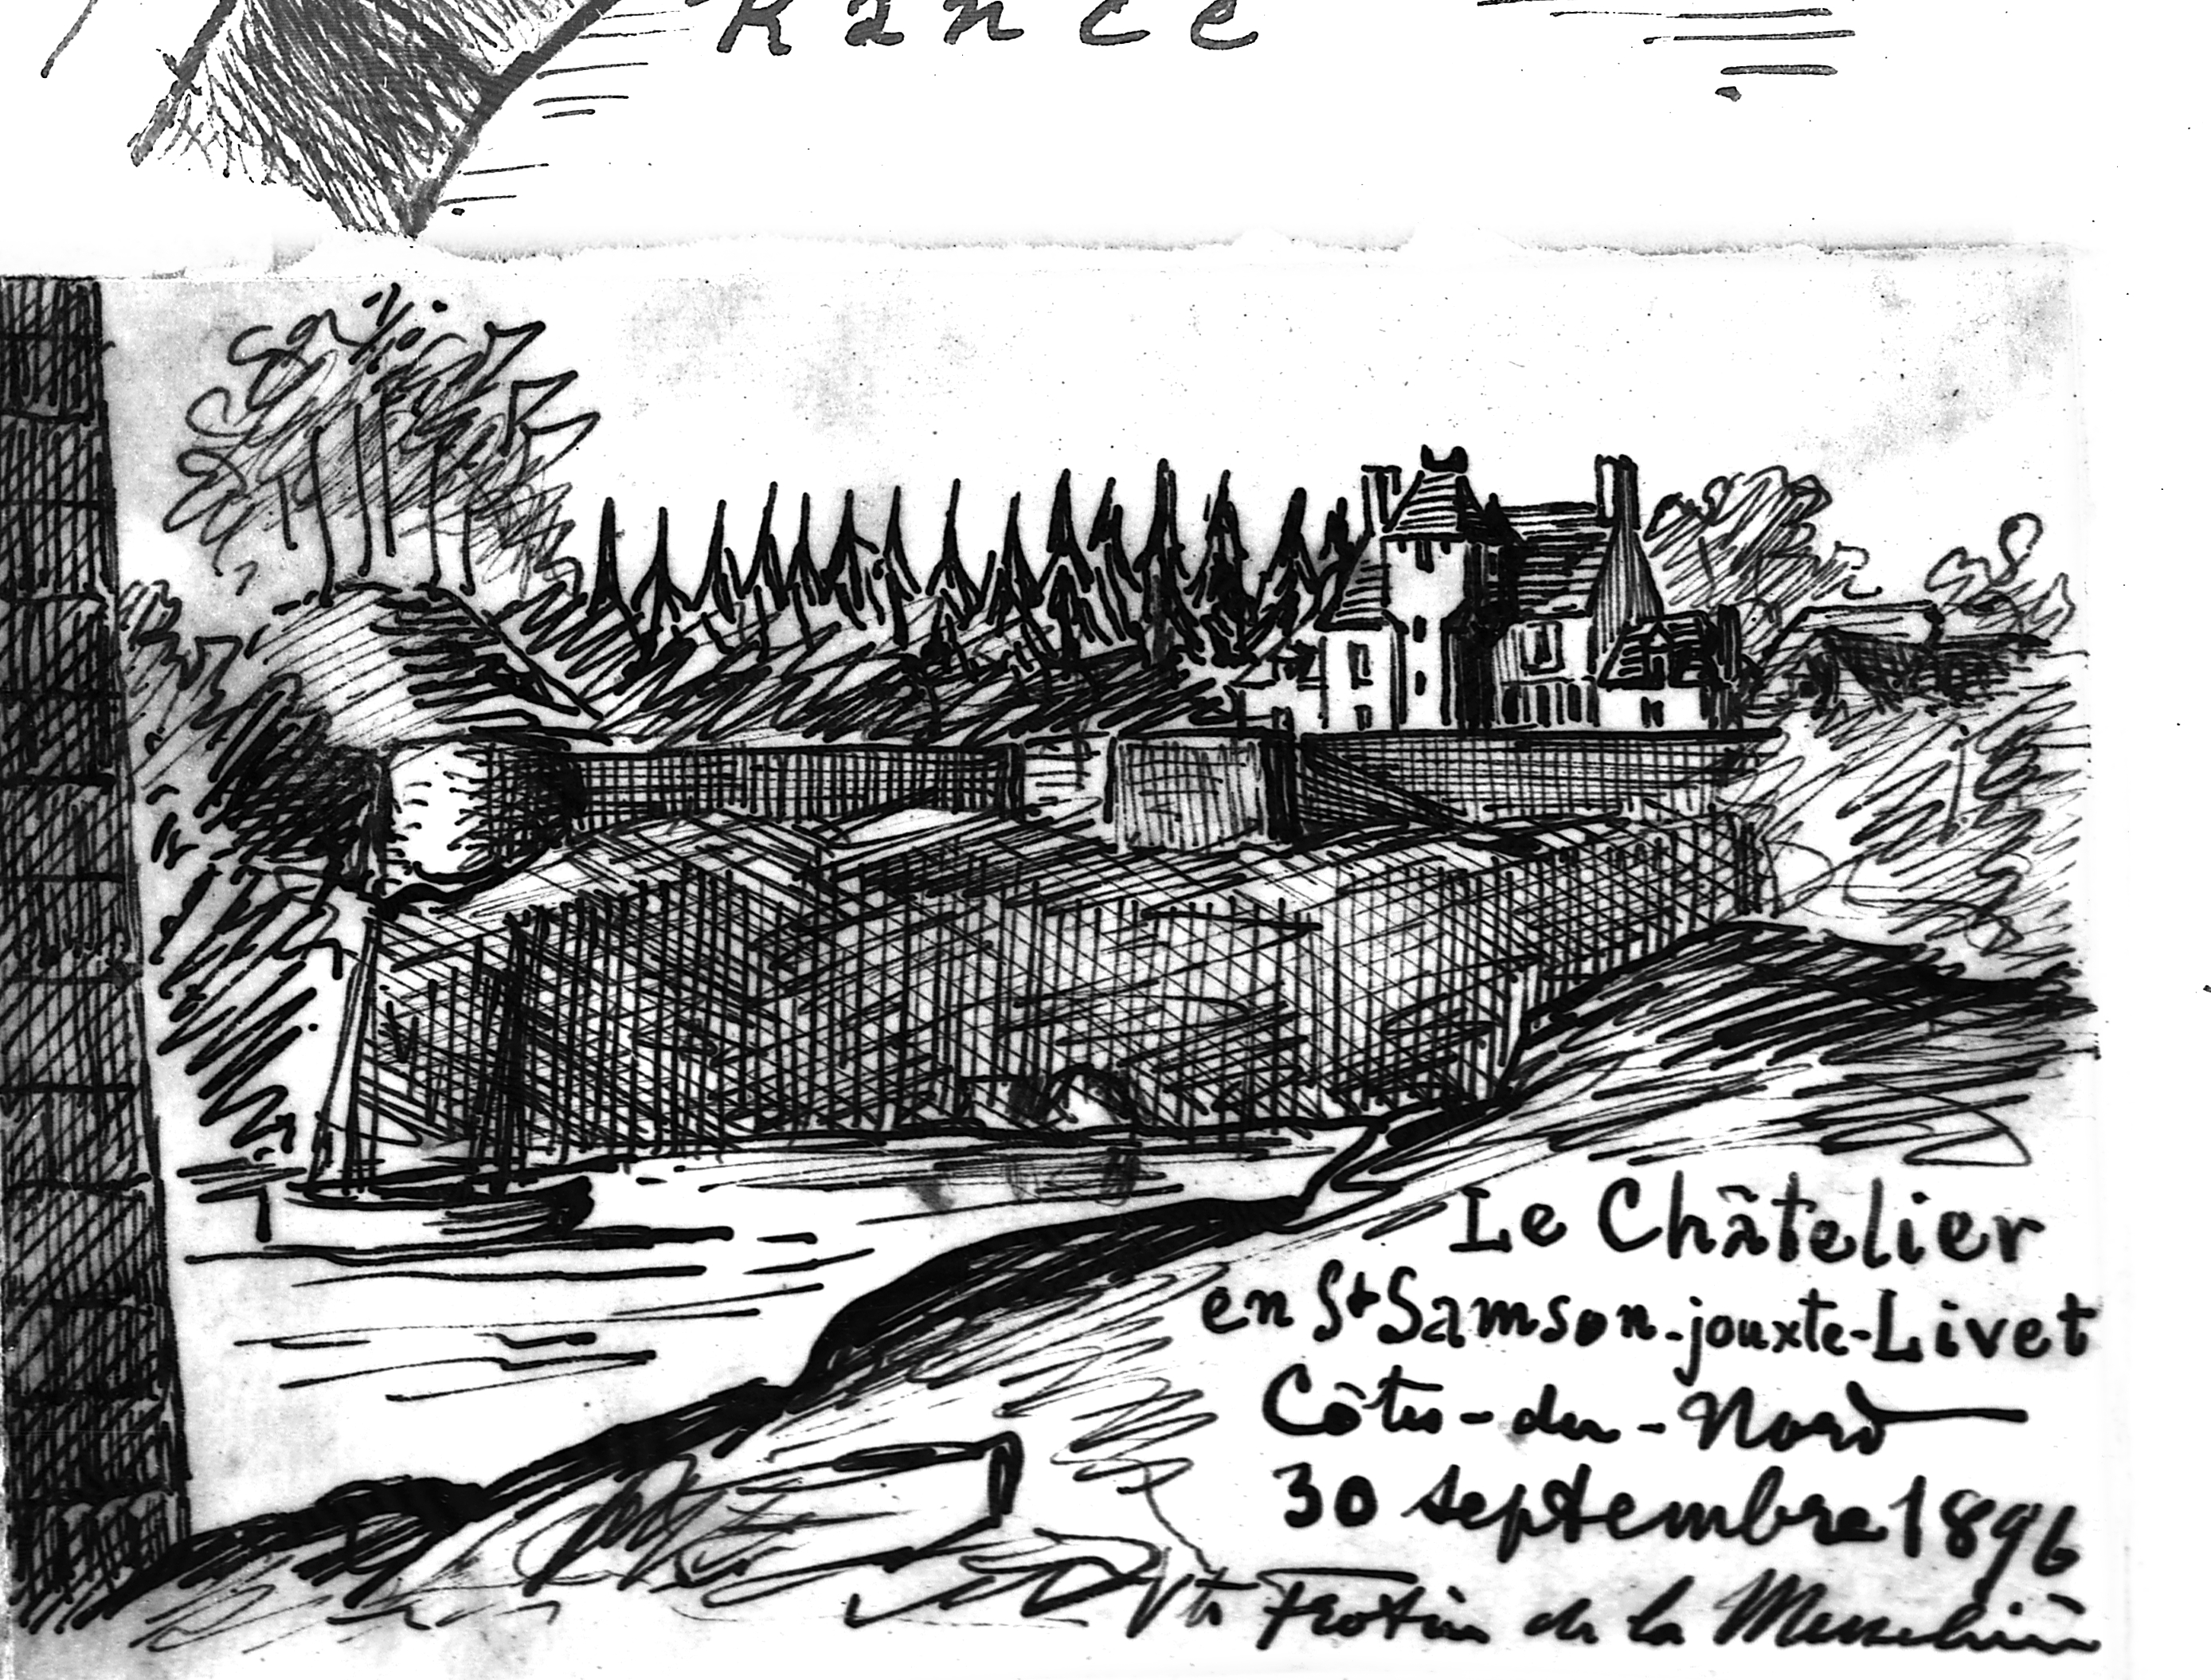 Rance
Le Châtelier
en St Samson-jouxte-Livet
Côtes-du-Nord
30 septembre 1896
Vte Frotier de la Messelière